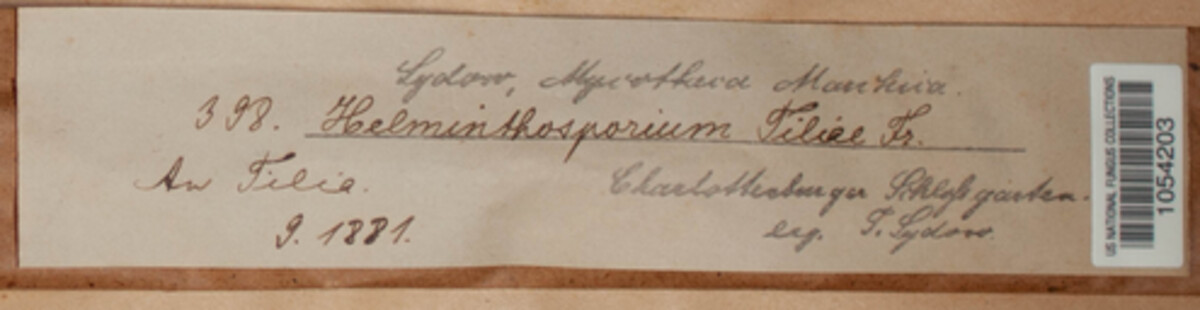 Sydow, Mycotheca Marchica.
398. Helminthosporium Tiliae Fr.
An Tilia.
Charlottenburger Schloßgarten.
9. 1881.
leg. P. Sydow.
US NATIONAL FUNGUS COLLECTIONS
1054203